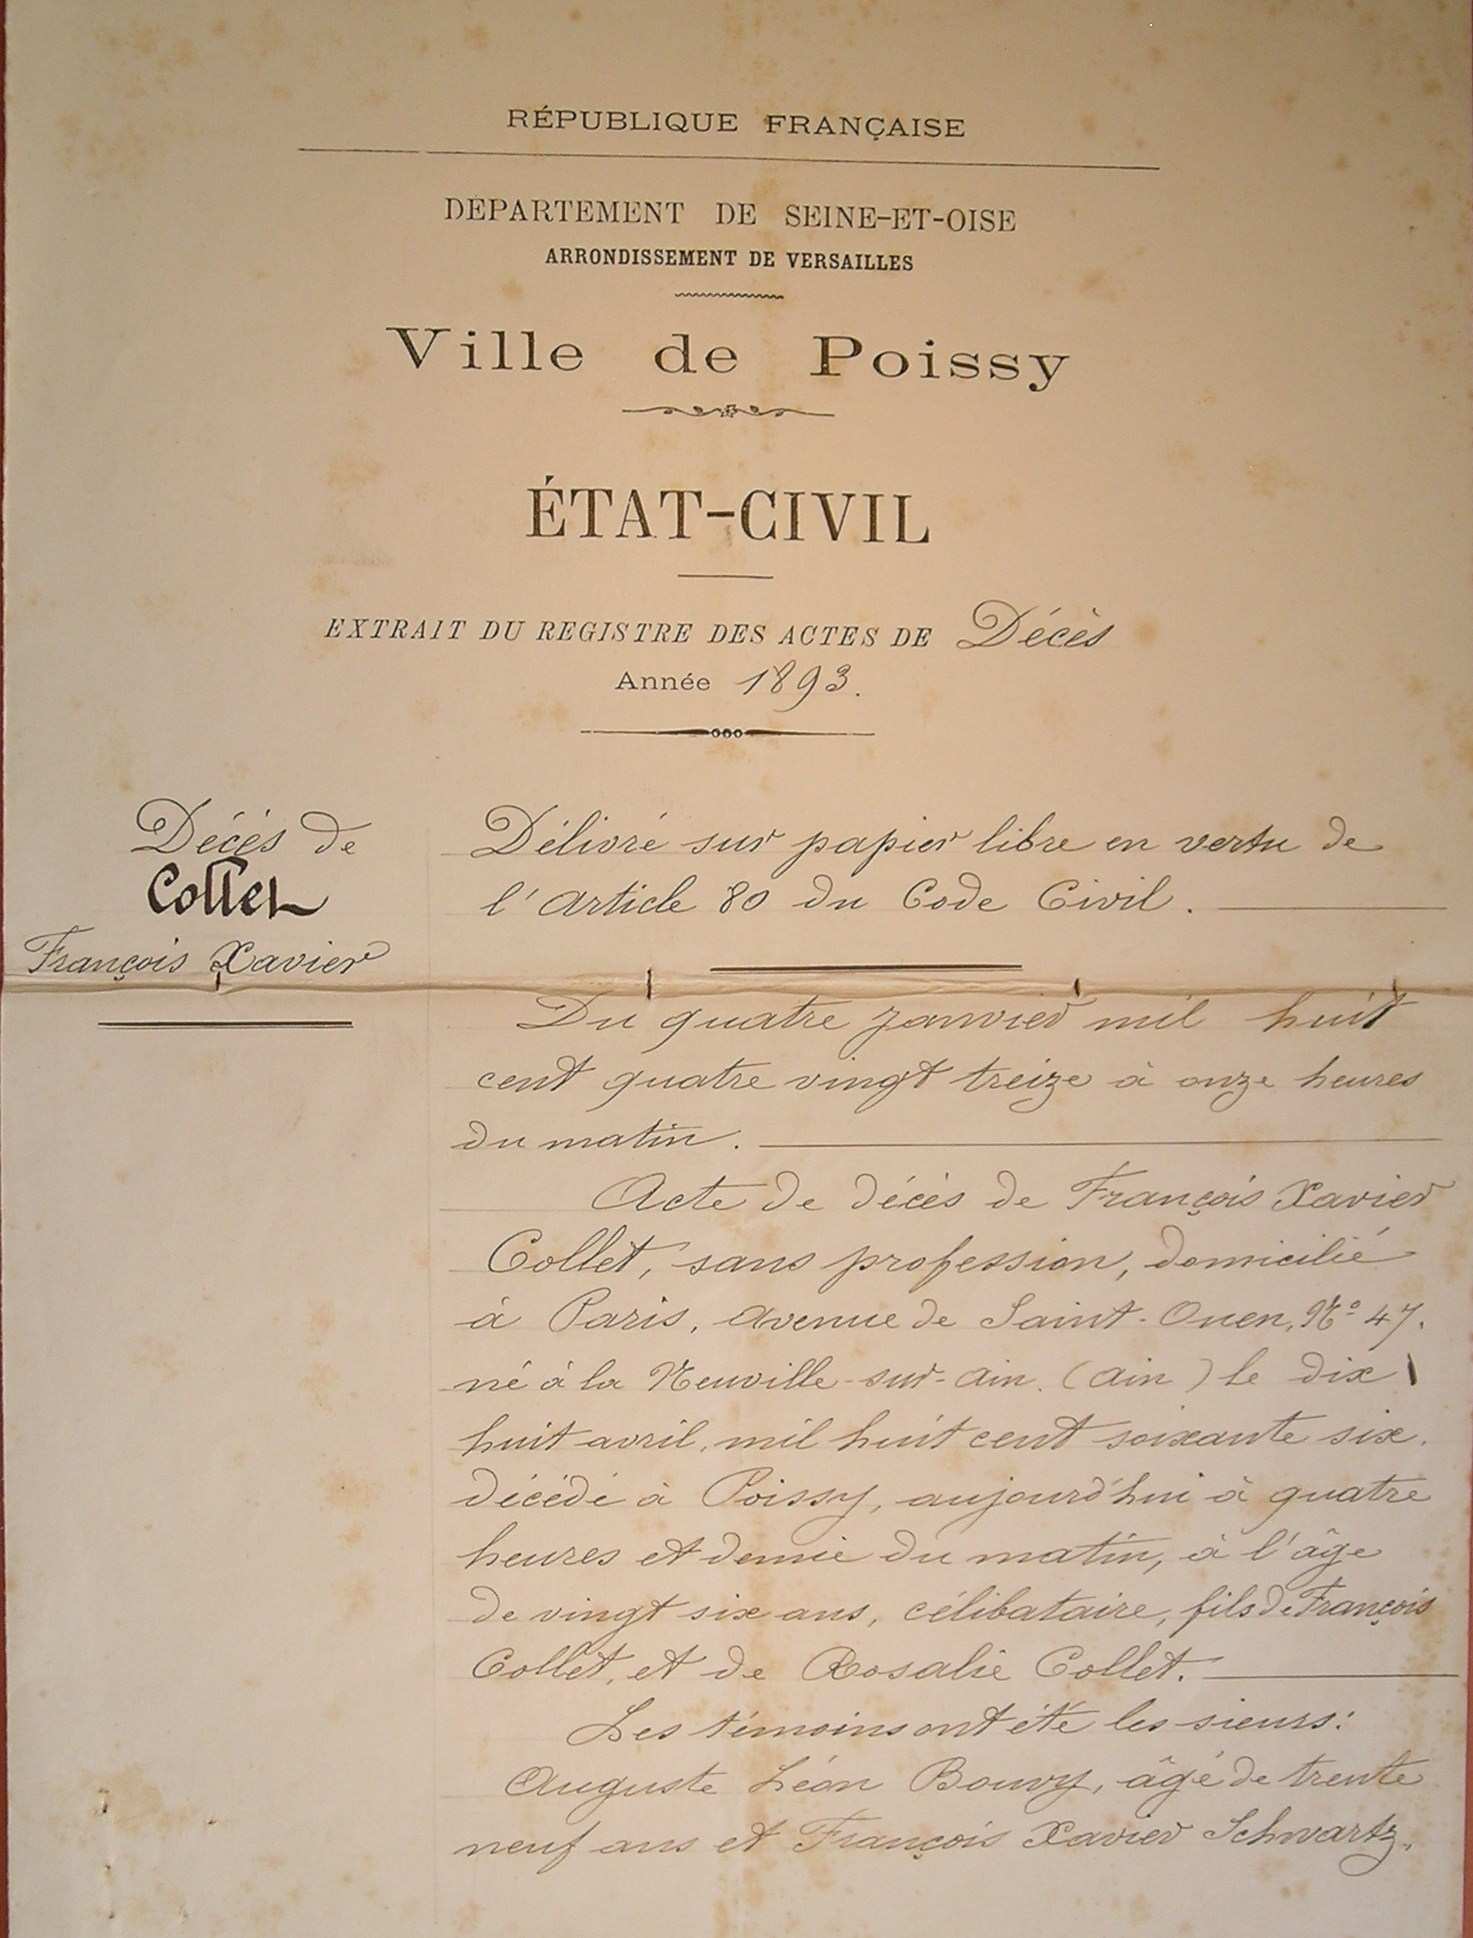 RÉPUBLIQUE FRANÇAISE
DÉPARTEMENT DE SEINE-ET-OISE
ARRONDISSEMENT DE VERSAILLES
Ville de Poissy
ÉTAT-CIVIL
EXTRAIT DU REGISTRE DES ACTES DE Décès
Année 1893.
Décès de
Collet
François Xavier
Délivré sur papier libre en vertu de
l'article 80 du Code Civil.
Du quatre janvier mil huit
cent quatre vingt treize à onze heures
du matin.
Acte de décès de François Xavier
Collet, sans profession, domicilié
à Paris, avenue de Saint-Ouen, No 47.
né à la Neuville-sur-ain. (ain) le dix
huit avril, mil huit cent soixante six.
décédé à Poissy, aujourd'hui à quatre
heures et demie du matin, à l'âge
de vingt six ans, célibataire, fils de François
Collet, et de Rosalie Collet.
Les témoins ont été les sieurs:
Auguste Léon Bouvy, âgé de trente
neuf ans et François Xavier Schwartz,